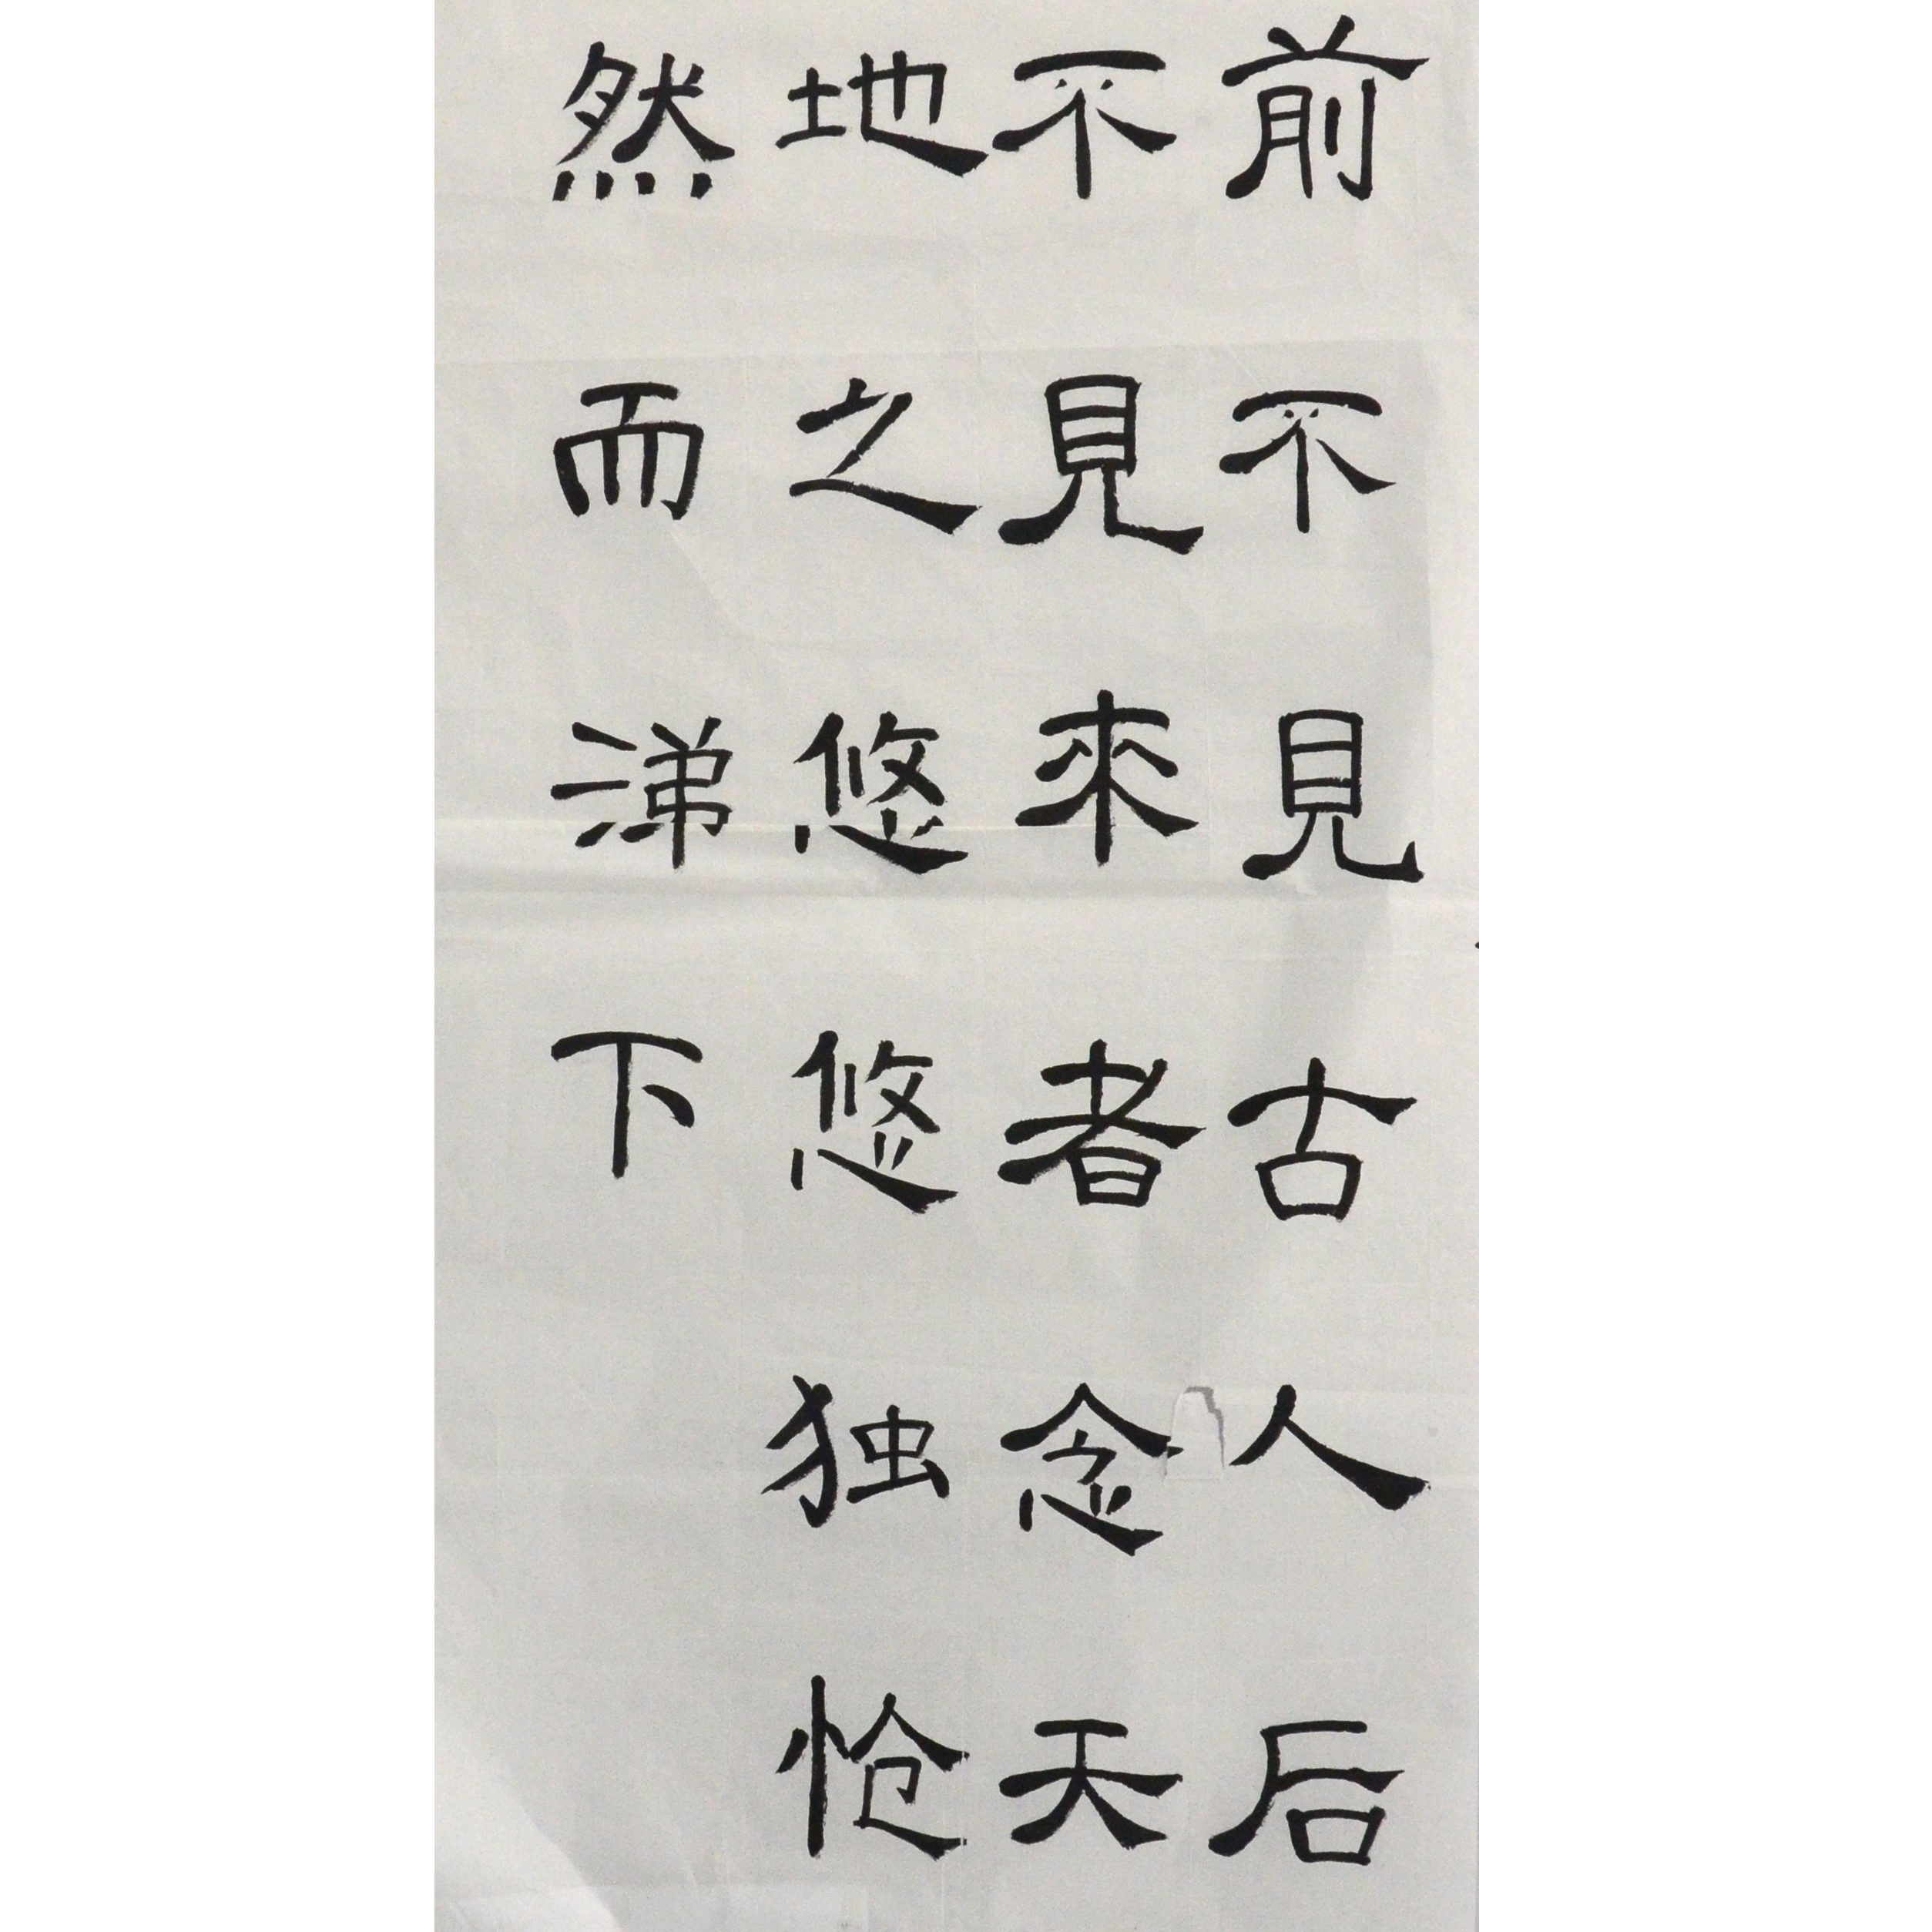 前不見古人后
不見來者念天
地之悠悠独怆
然而涕下